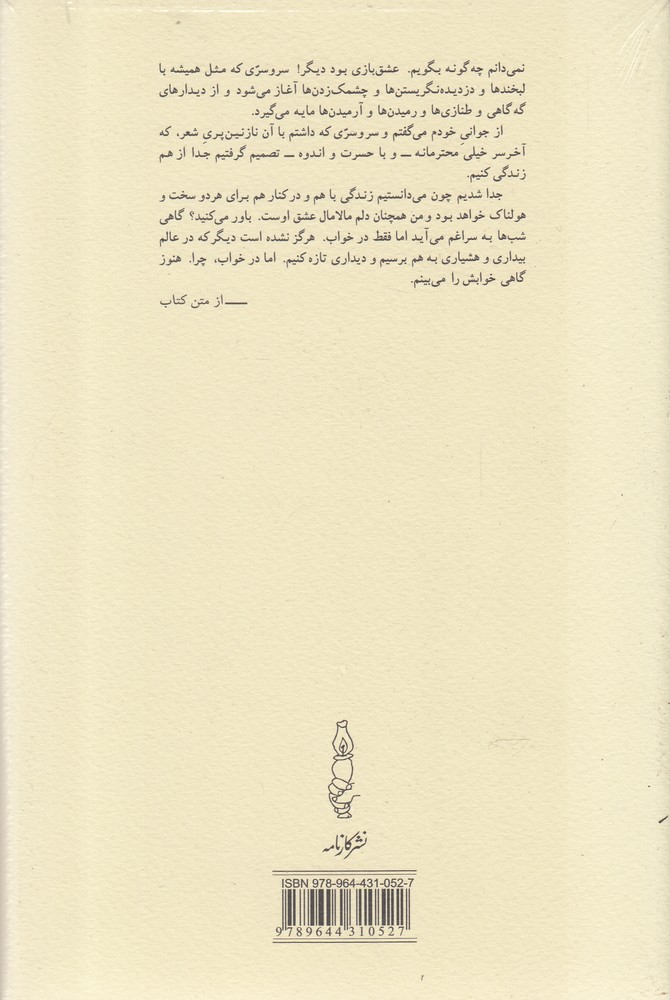 نمی‌دانم چه‌گونه بگویم. عشق‌بازی بود دیگر! سروسرّی که مثل همیشه با
لبخندها و دزدیده‌نگریستن‌ها و چشمک‌زدن‌ها آغاز می‌شود و از دیدارهای
گه‌گاهی و طنازی‌ها و رمیدن‌ها و آرمیدن‌ها مایه می‌گیرد.
از جوانیِ خودم می‌گفتم و سروسرّی که داشتم با آن نازنین‌پریِ شعر، که
آخرسر خیلی محترمانه ــ و با حسرت و اندوه ــ تصمیم گرفتیم جدا از هم
زندگی کنیم.
جدا شدیم چون می‌دانستیم زندگی با هم و در کنار هم برای هردو سخت و
هولناک خواهد بود و من همچنان دلم مالامال عشق اوست. باور می‌کنید؟ گاهی
شب‌ها به سراغم می‌آید اما فقط در خواب. هرگز نشده است دیگر که در عالم
بیداری و هشیاری به هم برسیم و دیداری تازه کنیم. اما در خواب، چرا. هنوز
گاهی خوابش را می‌بینم.
ــــ از متن کتاب
نشر کارنامه
ISBN 978-964-431-052-7
9 789644 310527